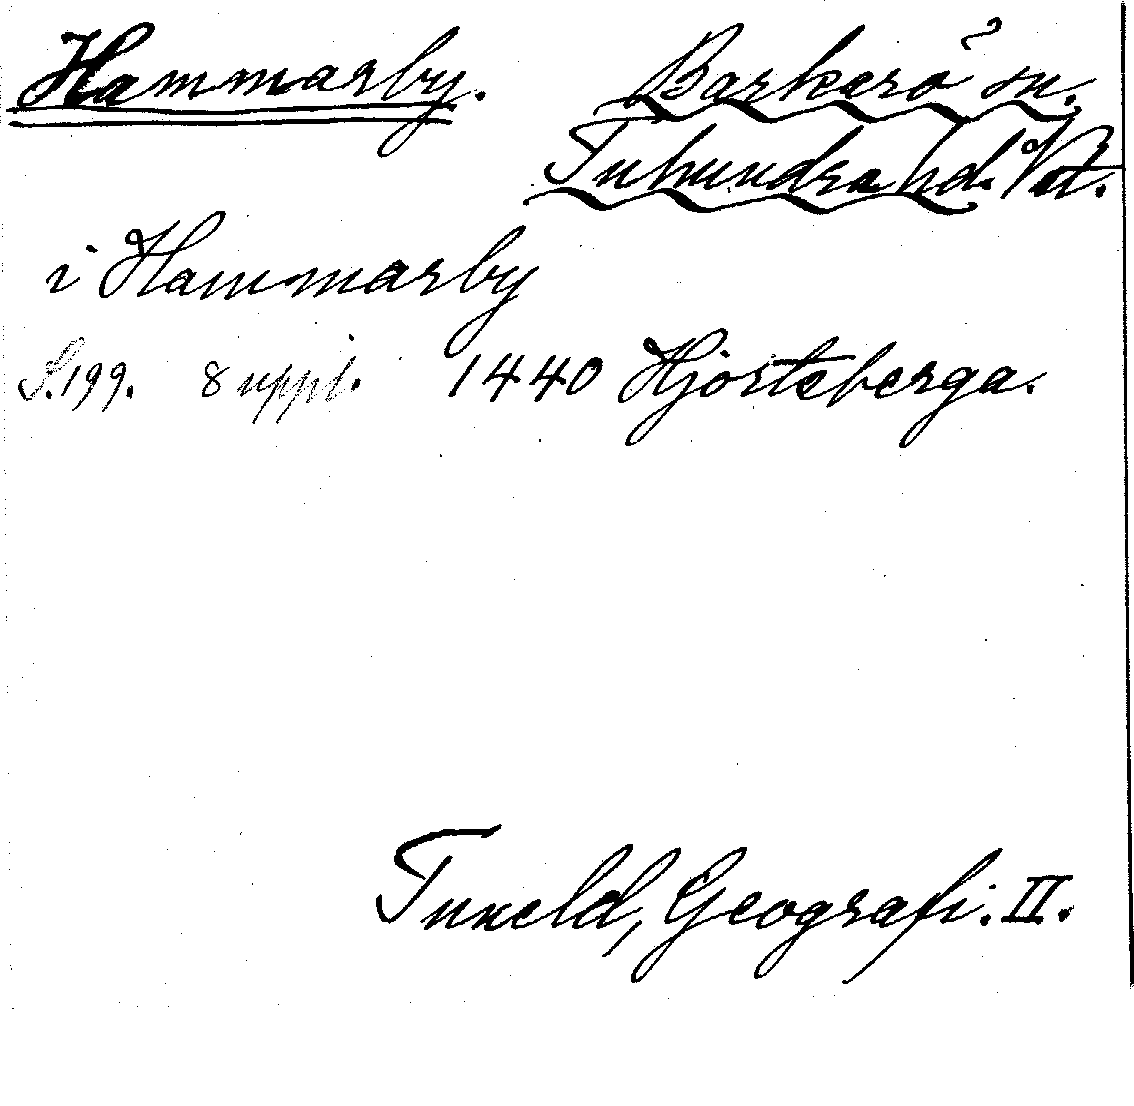 Hammarby. Barkarö sn.
Tuhundra hd. Vstl.
i Hammarby
S. 199. 8 uppl. 1440 Hjortsberga.
Tuneld, Geografi. II.